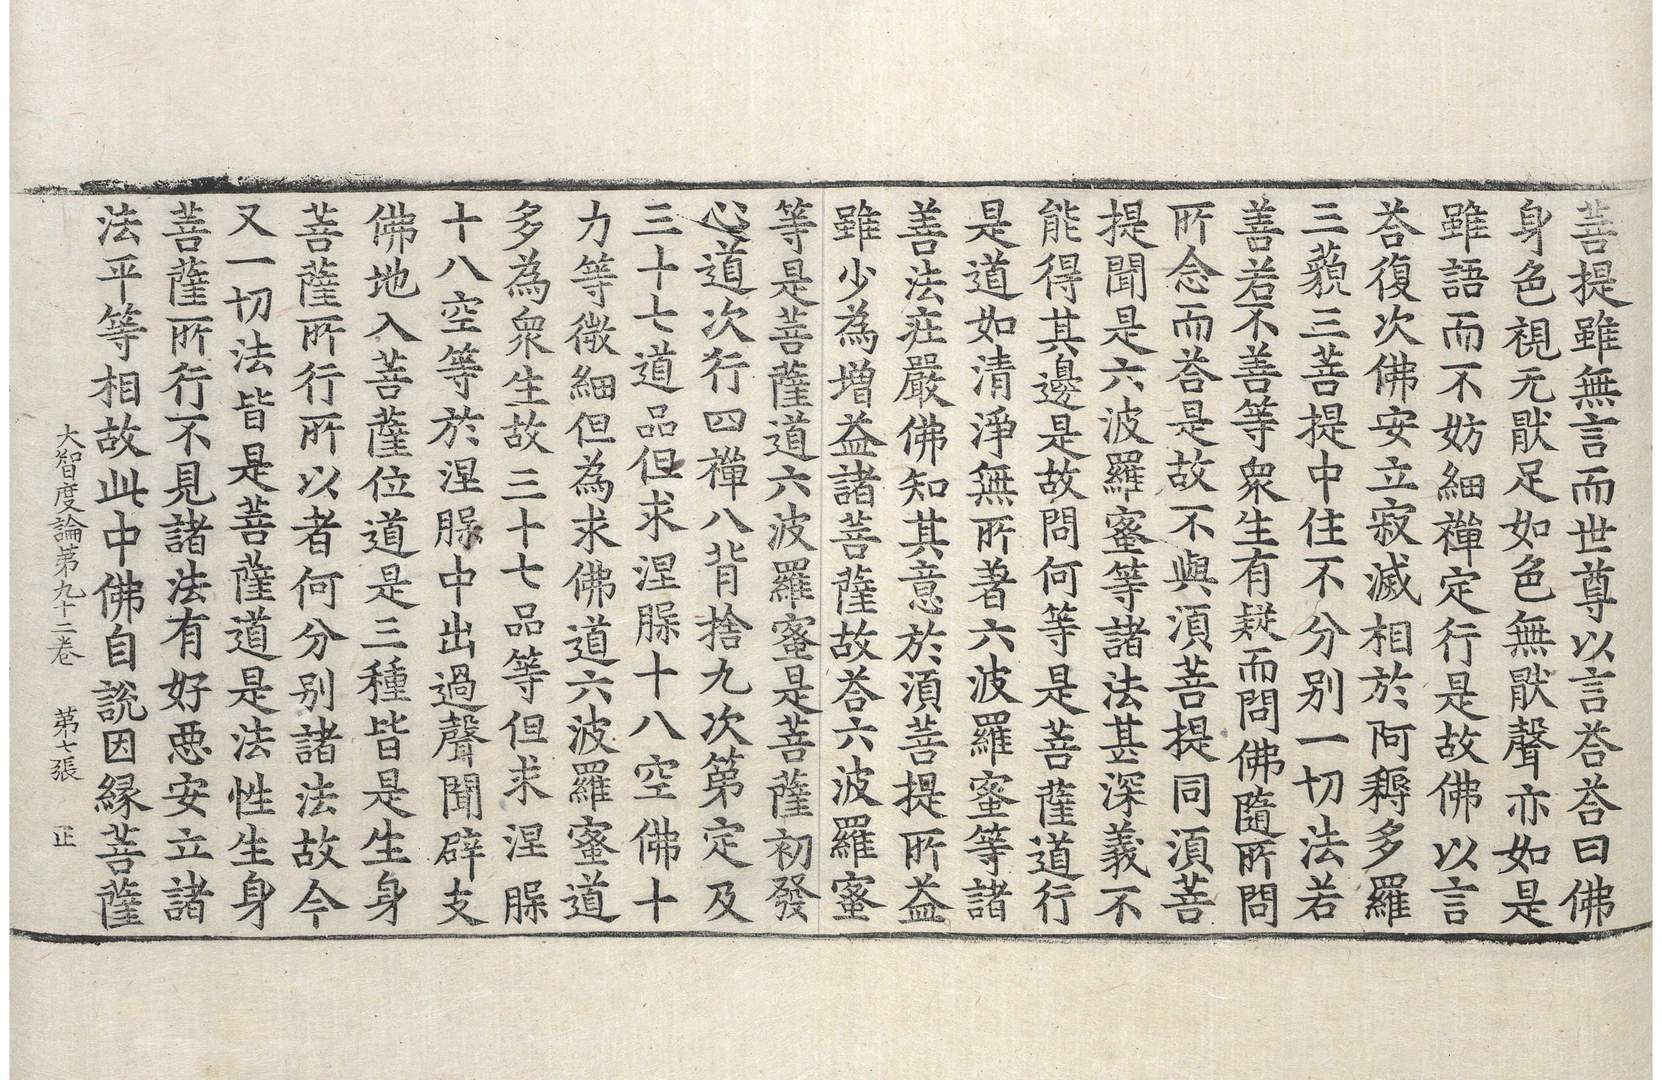 菩提雖無言而世尊以言荅荅曰佛
身色視无猒足如色無猒聲亦如是
雖語而不妨細禪定行是故佛以言
荅復次佛安立寂滅相於阿耨多羅
三藐三菩提中住不分別一切法若
善若不善等衆生有疑而問佛隨所問
所念而荅是故不與湏菩提同湏菩
提聞是六波羅蜜等諸法甚深義不
能得其邊是故問何等是菩薩道行
是道如清淨無所著六波羅蜜等諸
善法莊嚴佛知其意於湏菩提所益
雖少為增益諸菩薩故荅六波羅蜜
等是菩薩道六波羅蜜是菩薩初發
心道次行四禪八背捨九次第定及
三十七道品但求涅槃十八空佛十
力等微細但為求佛道六波羅蜜道
多為衆生故三十七品等但求涅槃
十八空等於涅槃中出過聲聞辟支
佛地入菩薩位道是三種皆是生身
菩薩所行所以者何分別諸法故今
又一切法皆是菩薩道是法性生身
菩薩所行不見諸法有好惡安立諸
法平等相故此中佛自說因緣菩薩
大智度論第九十二卷 第七張 正